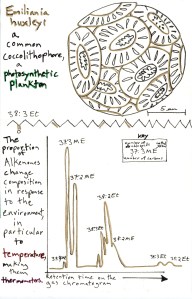 Emiliania
huxleyi
a
common
Coccolithophore,
a
photosynthetic
plankton
5 µm
38:3Et
The
proportion
of
Alkenones
change
composition
in response
to the
environment,
in
particular
to
temperature,
making
them
thermometers.
KEY
37:3 mE
number of carbons
37:3mE
37:2mE
38:2Et
38:2mE
Retention time on the
gas chromatogram